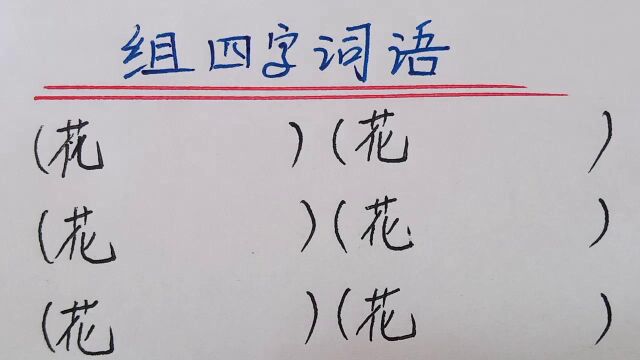 组四字词语
(花 )(花 )
(花 )(花 )
(花 )(花 )